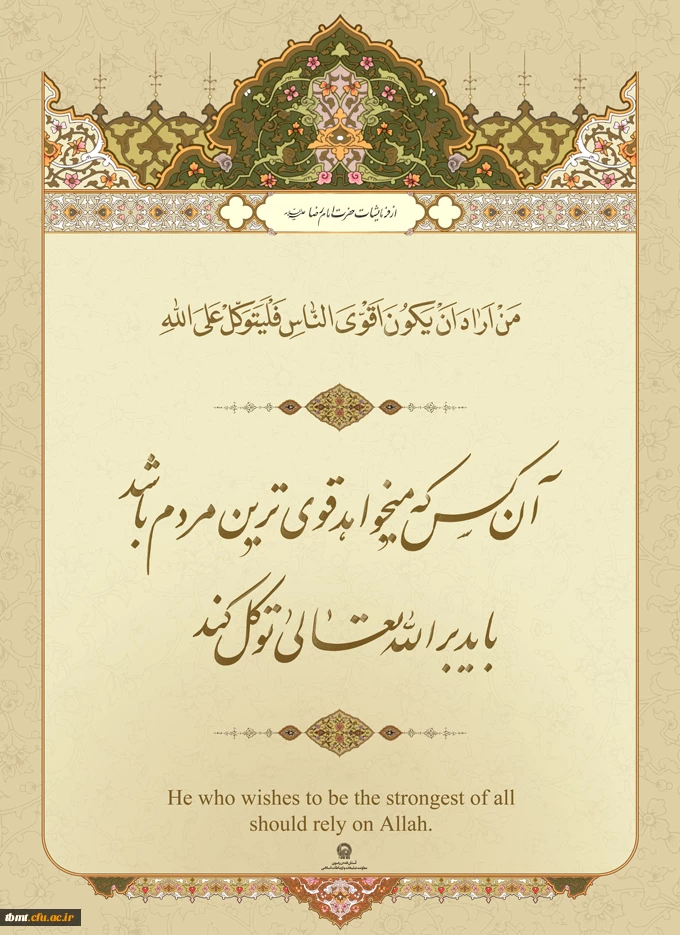 از فرمایشات حضرت امام رضا علیه‌السلام
مَنْ اَرٰادَ اَنْ يَكُونَ اَقْوَى النّٰاسِ فَلْيَتَوَكَّلْ عَلَى اللّٰهِ
آن کس که میخواهد قوی ترین مردم باشد
باید بر الله تعالیٰ توکل کند
He who wishes to be the strongest of all
should rely on Allah.
آستان قدس رضوی
معاونت تبلیغات و ارتباطات اسلامی
tbmt.cfu.ac.ir